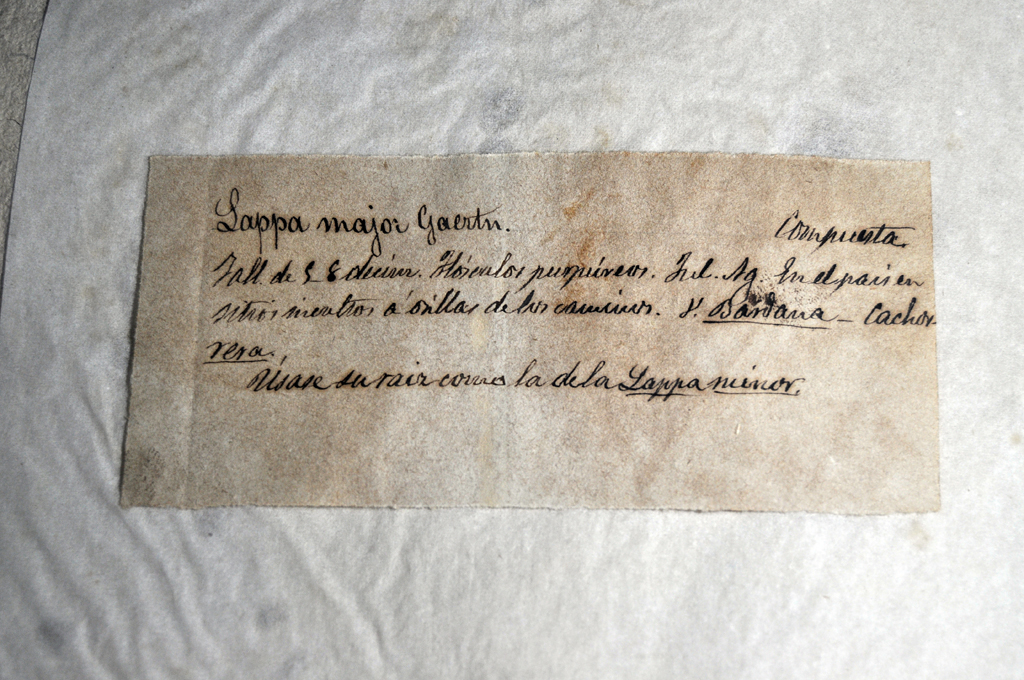 Lappa major Gaertn.
Compuesta.
Tall. de 5 8 decim. Flósculos purpúreos. Jul. Ag. En el pais en
sitios incultos ó orillas de los caminos. V. Bardana - Cachor-
rera.
Úsase su raiz como la de la Lappa minor.